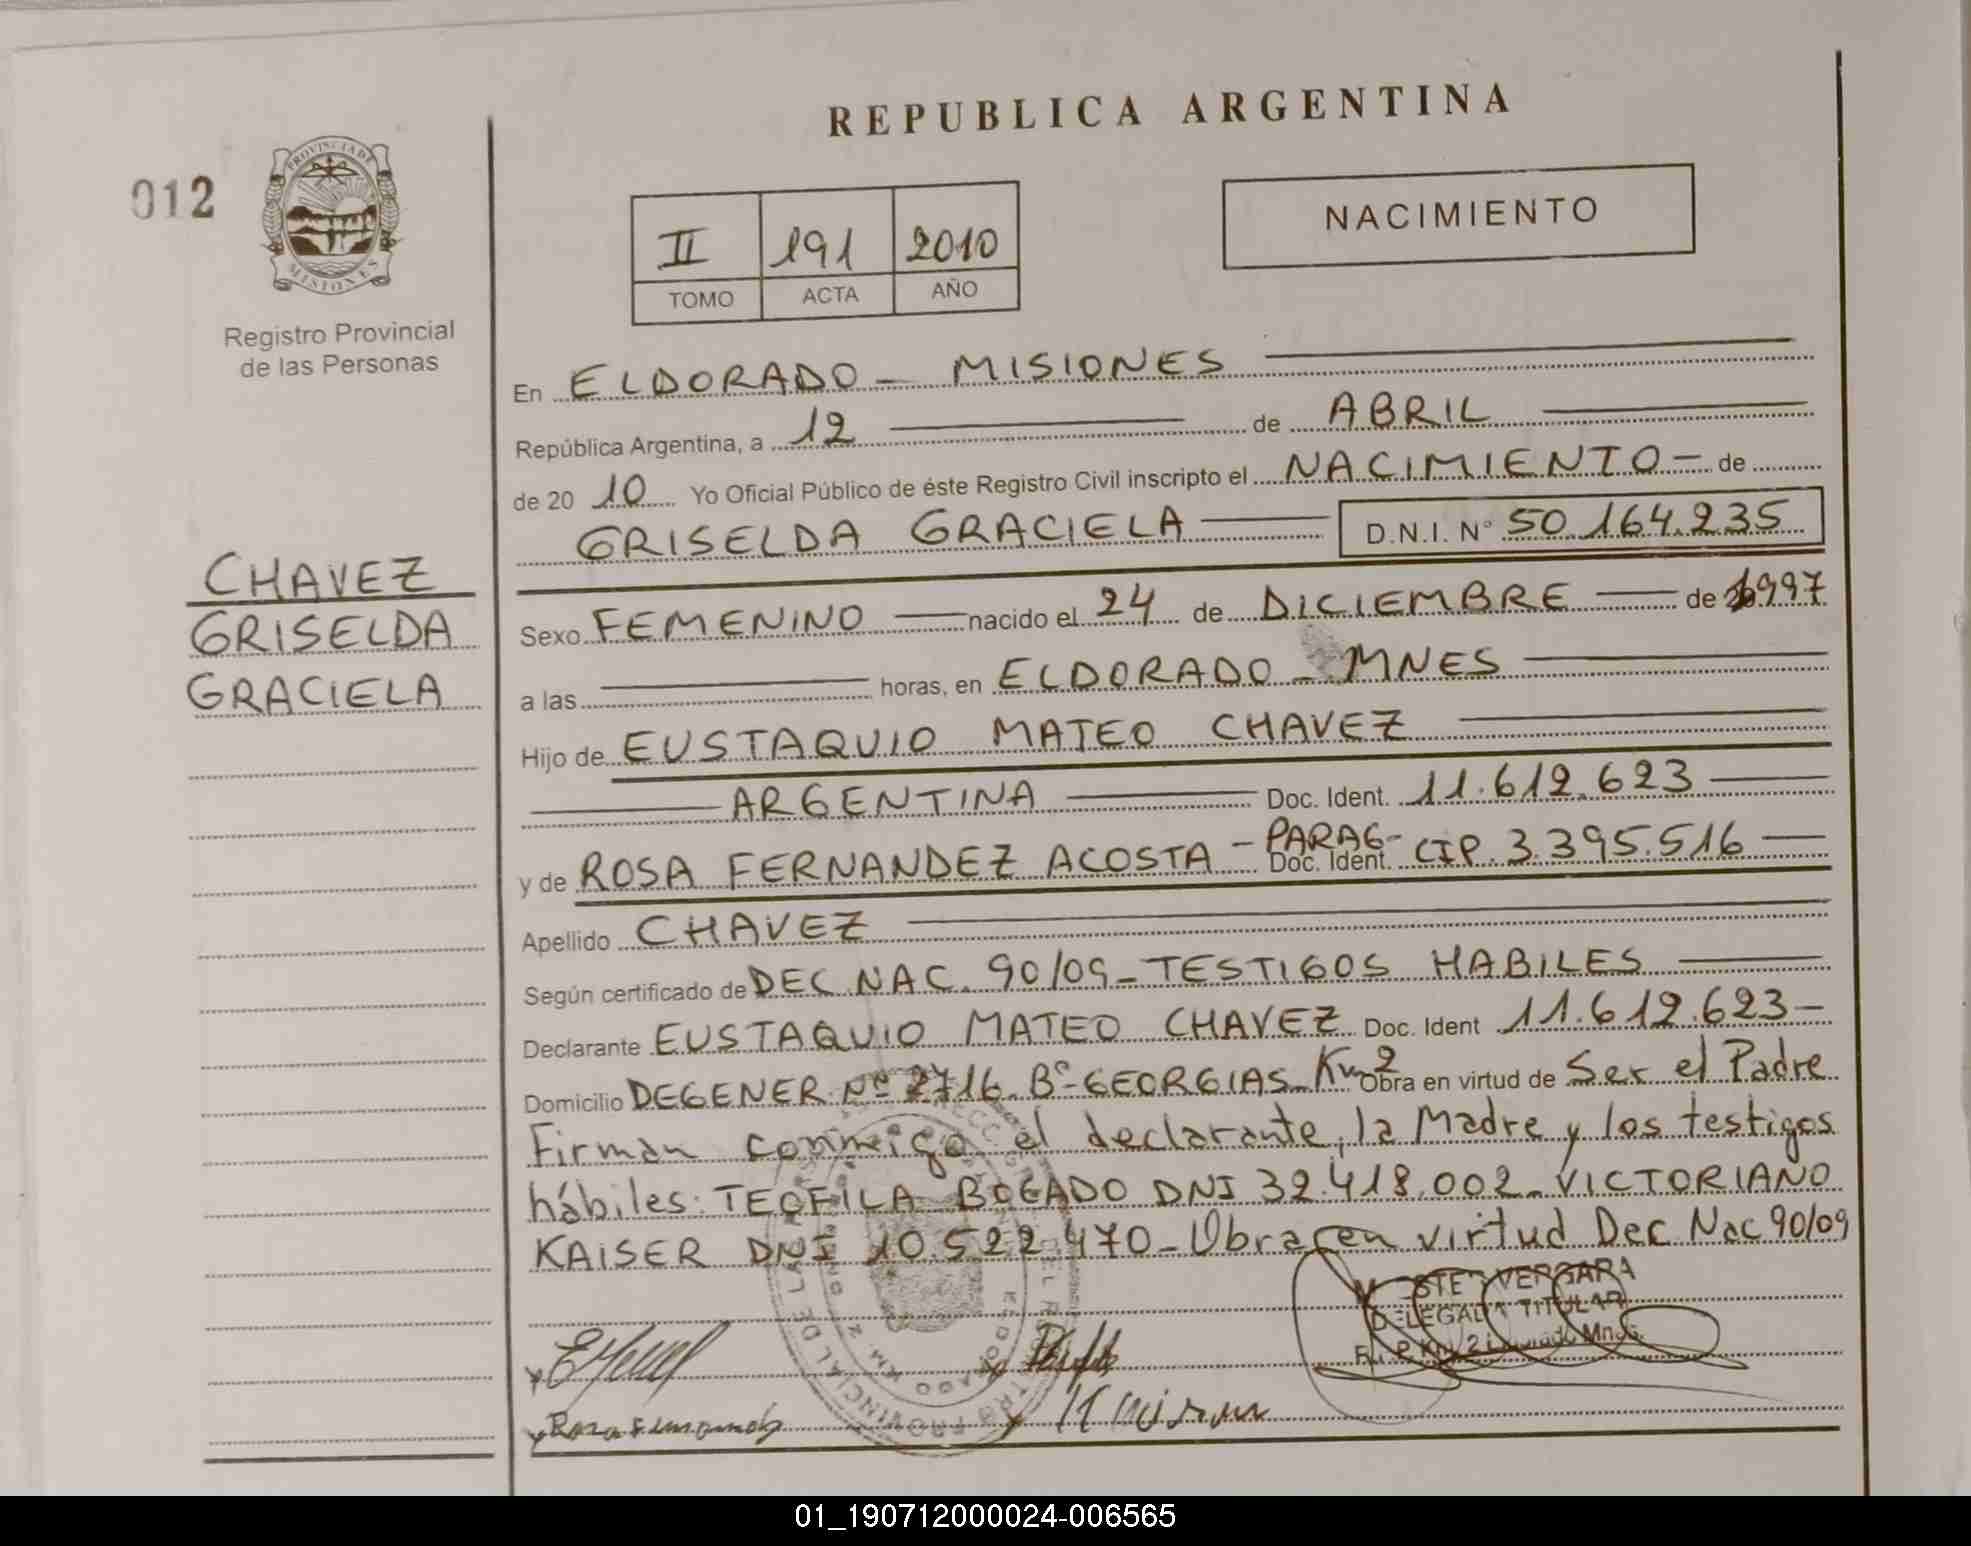 REPUBLICA ARGENTINA
012
PROVINCIA DE
MISIONES
Registro Provincial
de las Personas
II 191 2010
TOMO ACTA AÑO
NACIMIENTO
CHAVEZ
GRISELDA
GRACIELA
En ELDORADO - MISIONES
República Argentina, a 12 de ABRIL
de 20 10 Yo Oficial Público de éste Registro Civil inscripto el NACIMIENTO - de
GRISELDA GRACIELA D.N.I. N° 50.164.235
Sexo FEMENINO nacido el 24 de DICIEMBRE de 1997
a las horas, en ELDORADO - MNES
Hijo de EUSTAQUIO MATEO CHAVEZ
ARGENTINA Doc. Ident. 11.612.623
y de ROSA FERNANDEZ ACOSTA - PARAG- Doc. Ident. CIP. 3.395.516
Apellido CHAVEZ
Según certificado de DEC NAC. 90/09 - TESTIGOS HABILES
Declarante EUSTAQUIO MATEO CHAVEZ Doc. Ident 11.612.623-
Domicilio DEGENER Nº 2716 Bº-GEORGIAS Km 2 Obra en virtud de Ser el Padre
Firman conmigo el declarante, la Madre y los testigos
hábiles: TEOFILA BOGADO DNI 32.418.002 - VICTORIANO
KAISER DNI 10.522.470 - Obra en virtud Dec. Nac 90/09
VERGARA
DELEGADA TITULAR
01_190712000024-006565